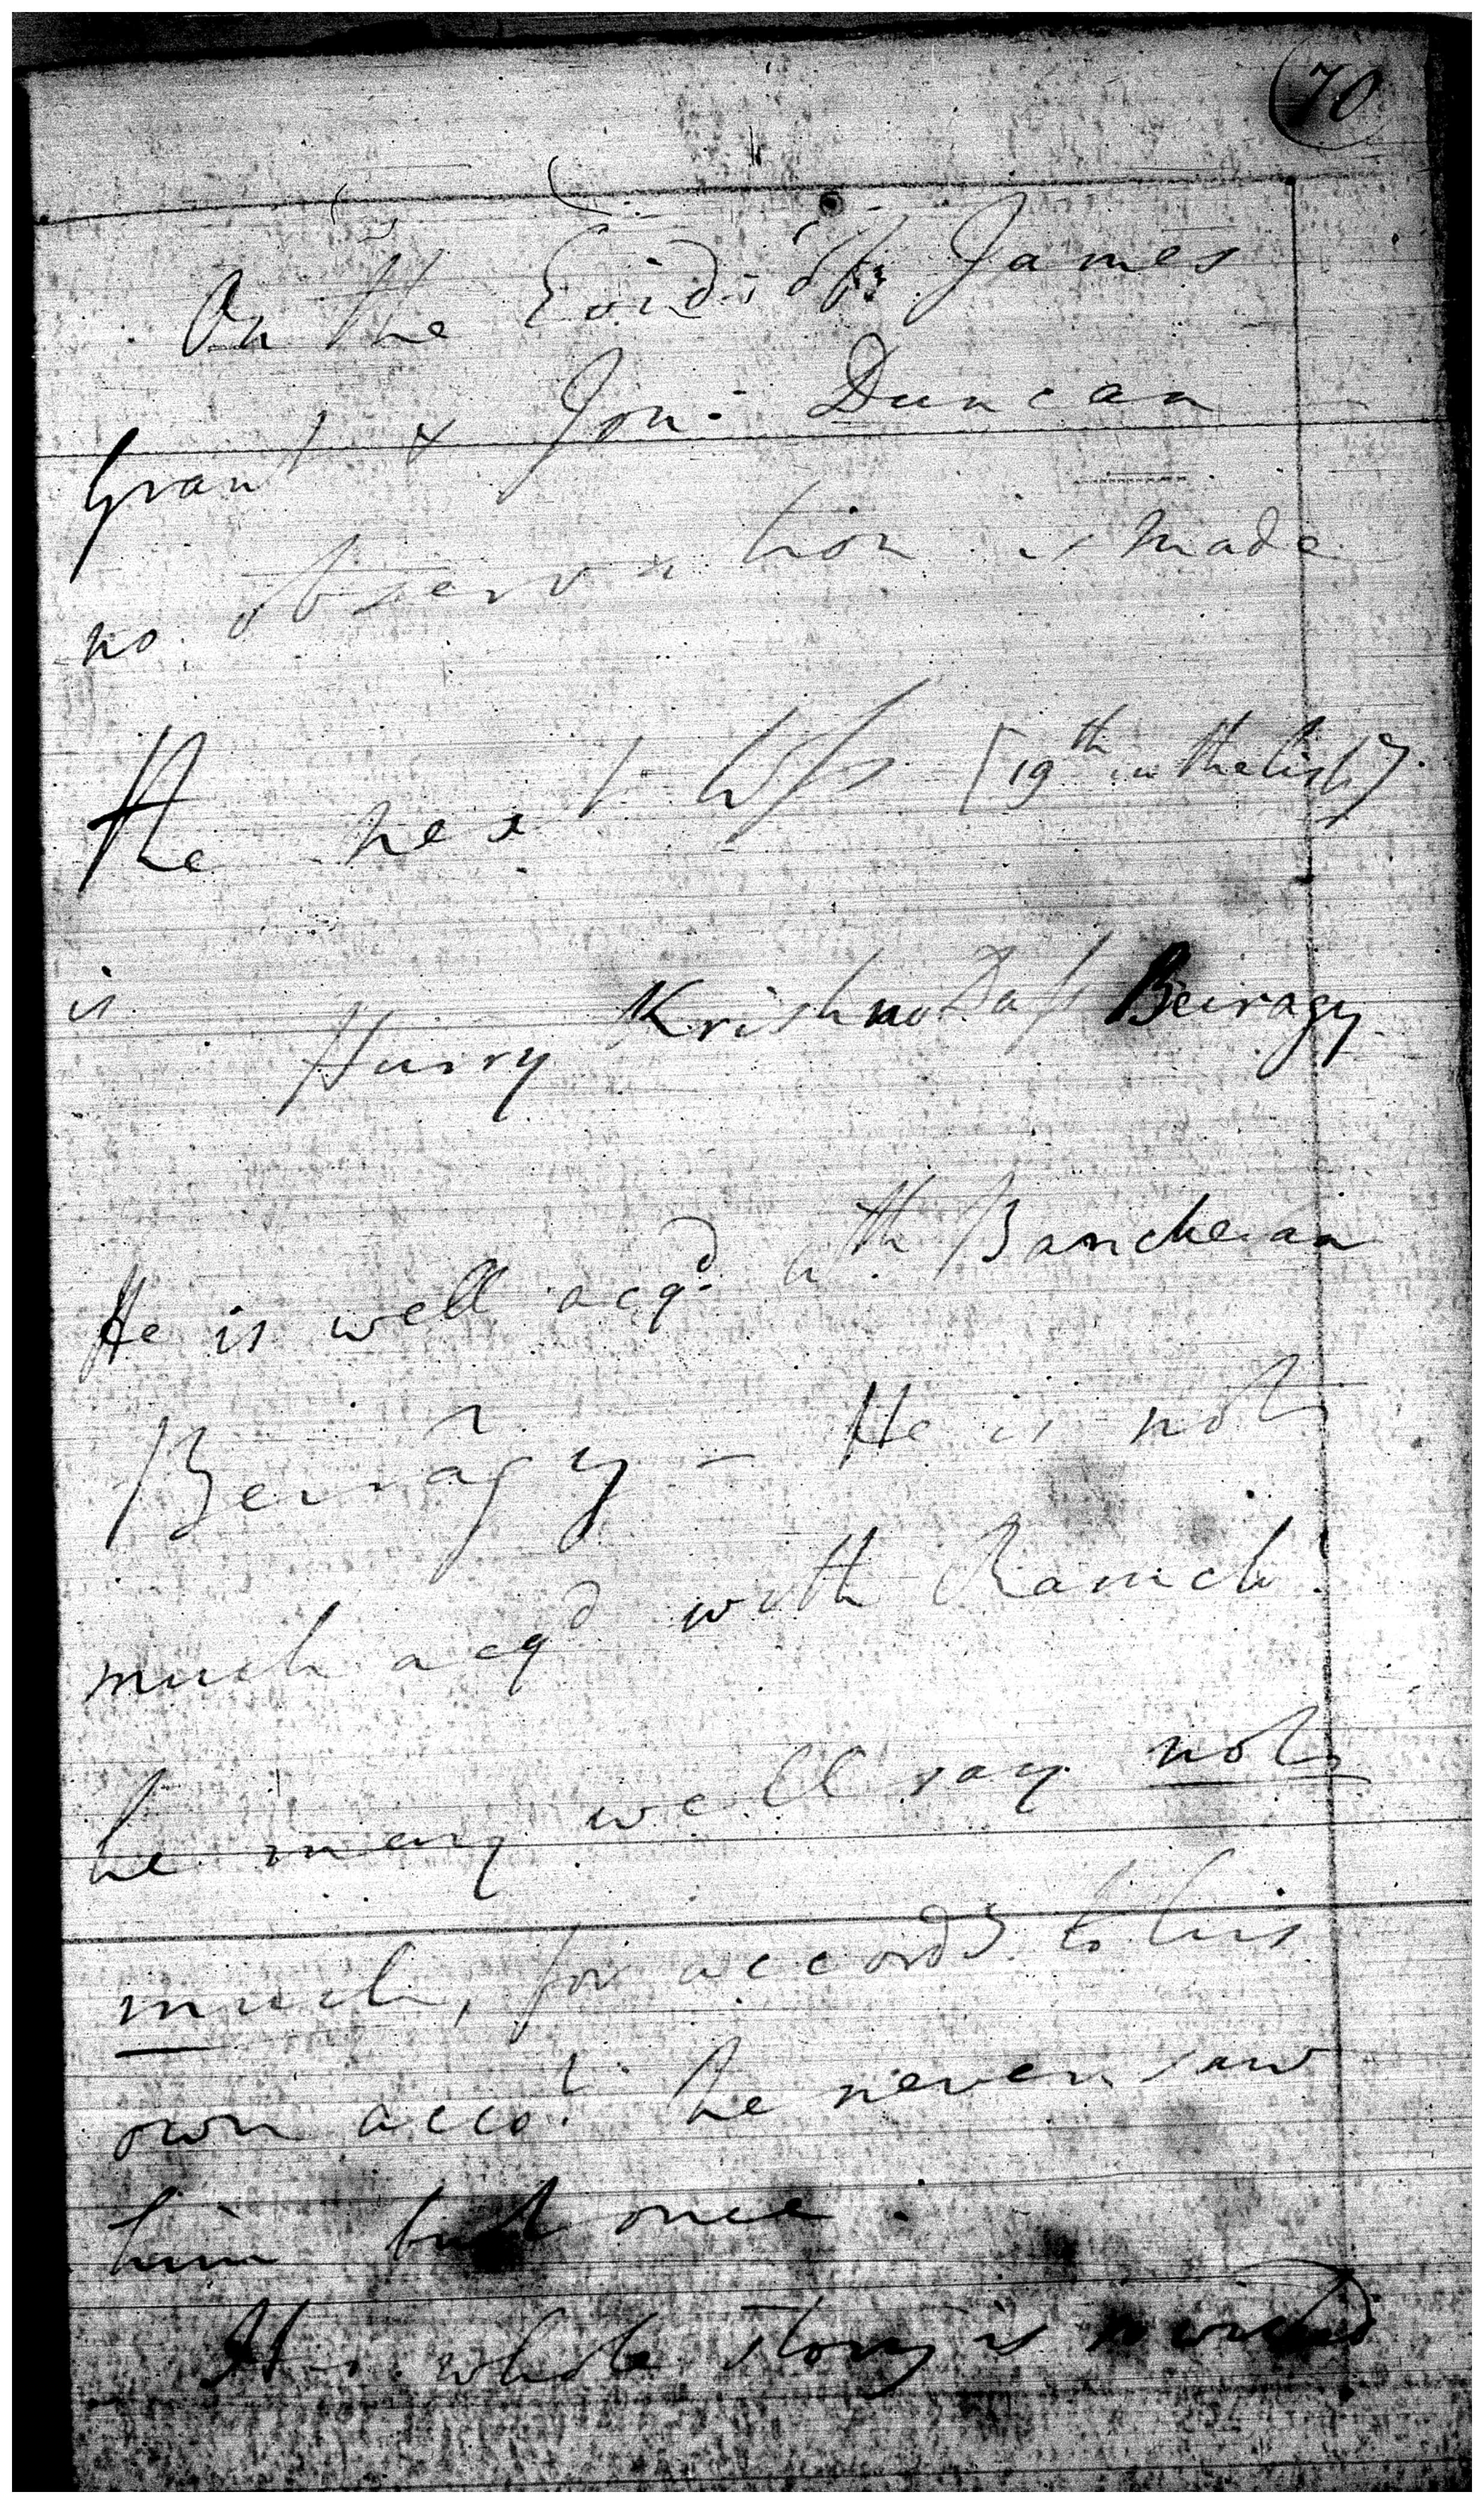 70
On the Evid: of James
Grant & Jon: Duncan
no observation is made
The next Wss [19th in the list]
is
Hurry Krishno Dass Beiragy
He is well acqd wth Bancheran
Beirãgy – He is not
much acqd with Ramch:
he may well say not
much, for accordg to his
own accot: he never saw
him but once.
His whole story is